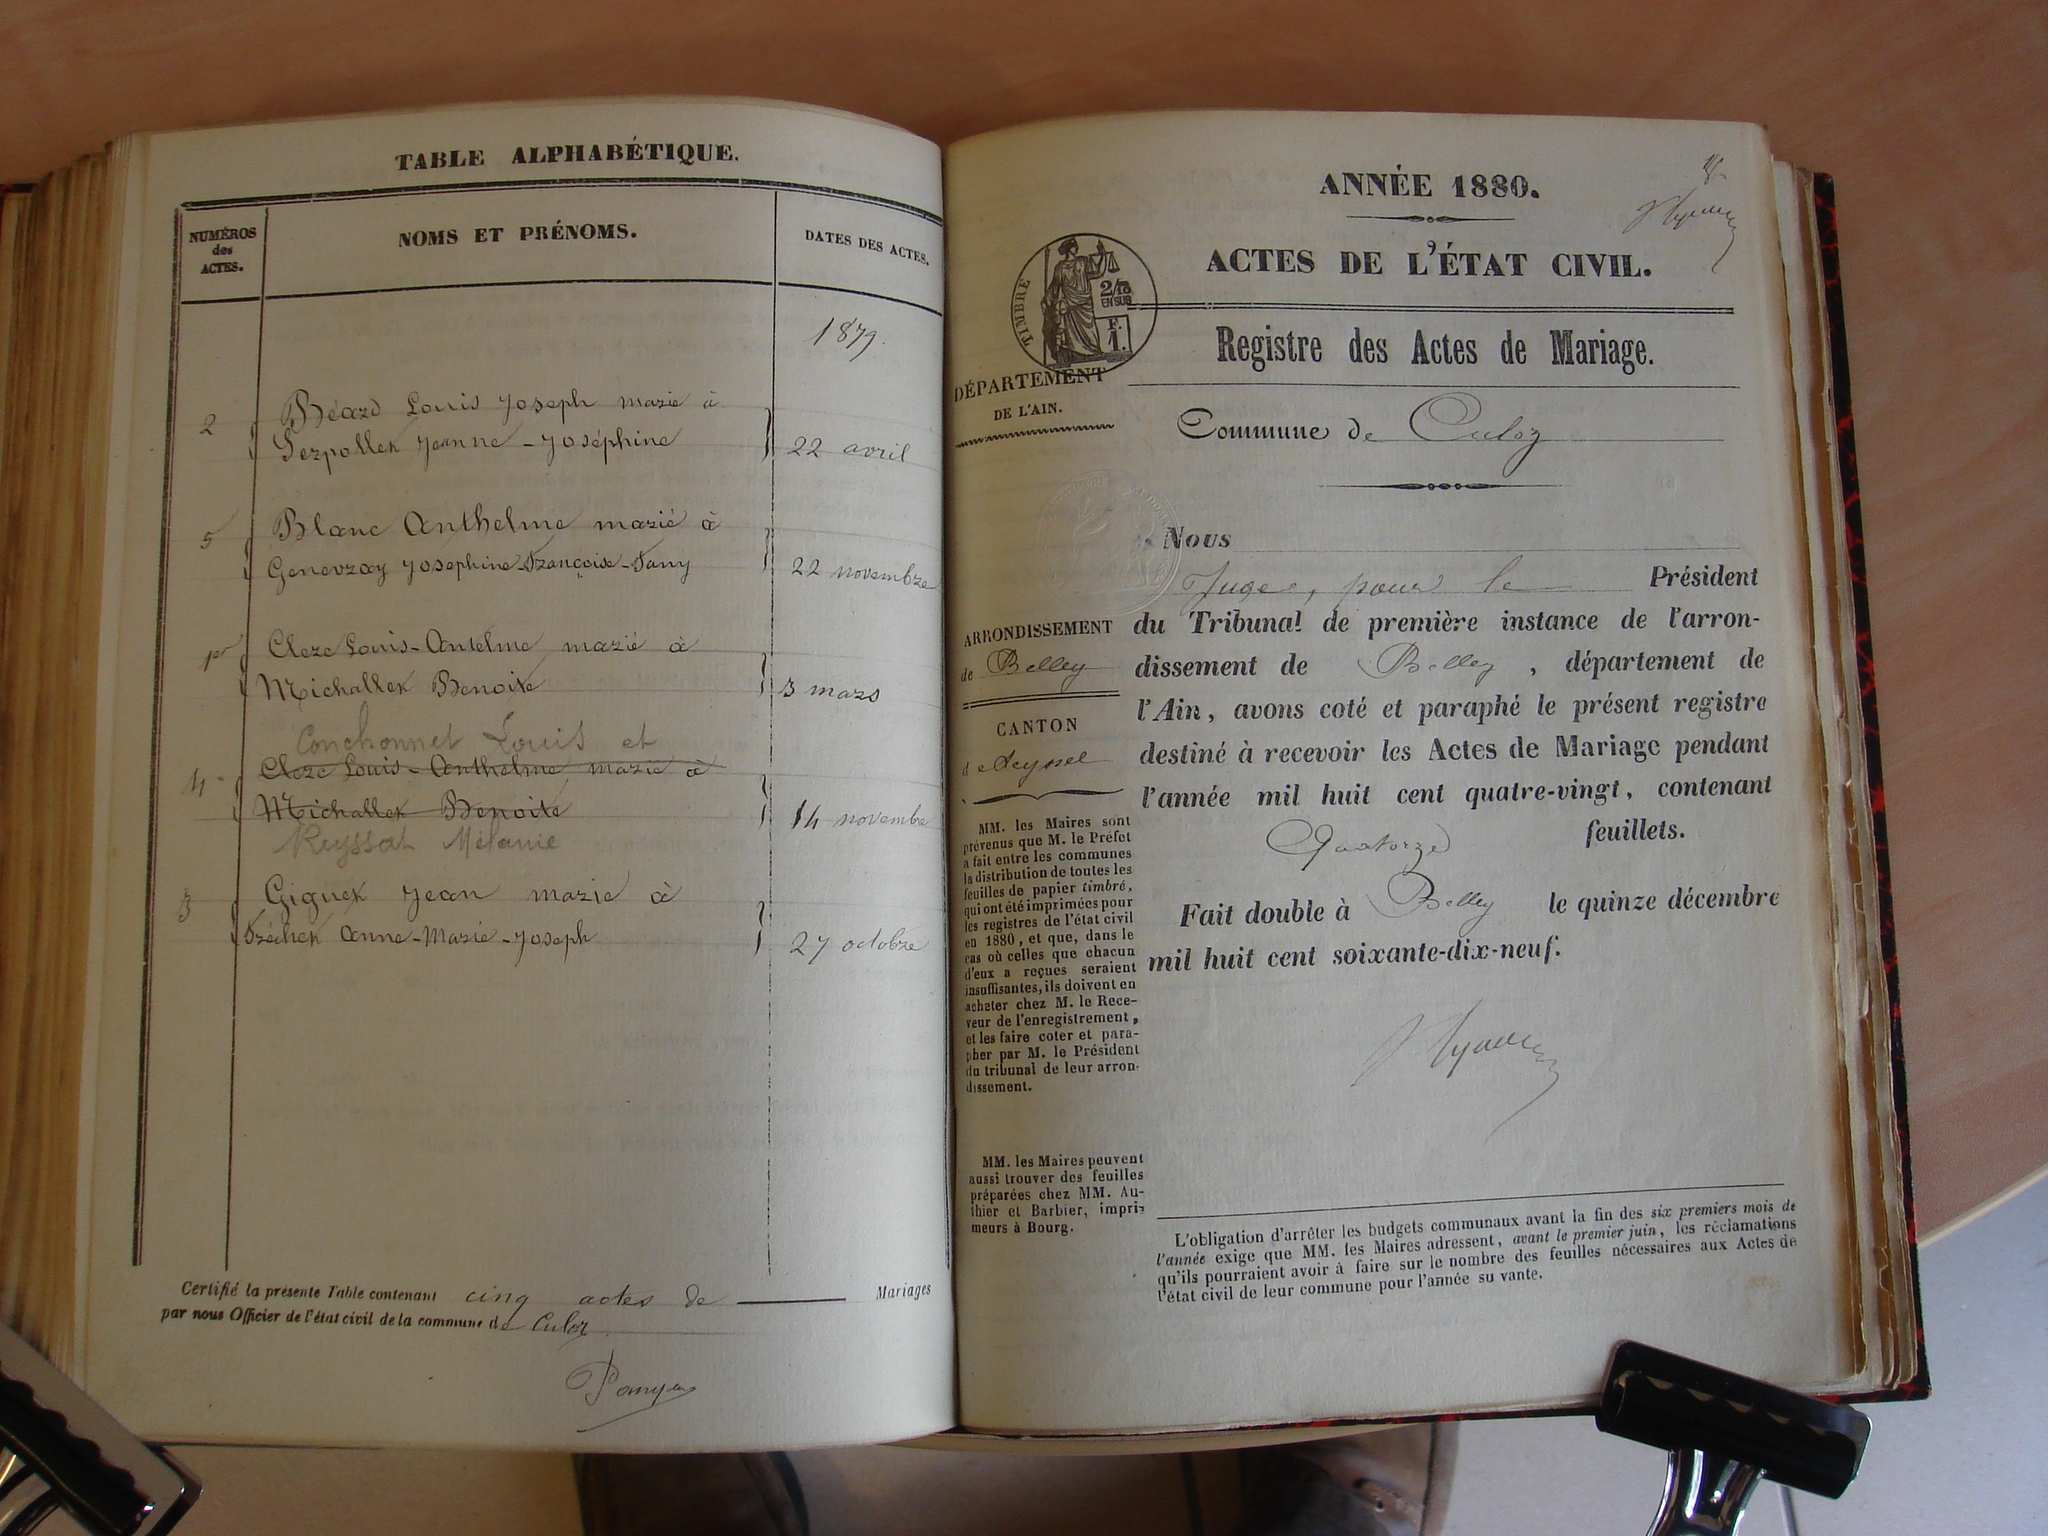 TABLE ALPHABÉTIQUE.
NUMÉROS
des
ACTES.
NOMS ET PRÉNOMS.
DATES DES ACTES.
1879.
2
Béard Louis Joseph marié à
Serpollet Jeanne-Joséphine
22 avril
5
Blanc Anthelme marié à
Genevray Josephine-Françoise-Fany
22 novembre
1er
Cleze Louis-Antelme marié à
Michallet Benoite
3 mars
Conchonnet Louis et
4
Cleze Louis-Anthelme marié à
Michallet Benoite
14 novembre
Reyssat Mélanie
3
Giguet Jean marié à
Fréchet Anne-Marie-Joseph
27 octobre
Certifié la présente Table contenant cinq actes de Mariages
par nous Officier de l'état civil de la commune de Culoz
ANNÉE 1880.
ACTES DE L'ÉTAT CIVIL.
TIMBRE
2/10
EN SUS
F.
1.
Registre des Actes de Mariage.
DÉPARTEMENT
DE L'AIN.
Commune de Culoz
Nous
Juge, pour le Président
du Tribunal de première instance de l'arron-
dissement de Belley, département de
l'Ain, avons coté et paraphé le présent registre
destiné à recevoir les Actes de Mariage pendant
l'année mil huit cent quatre-vingt, contenant
Quatorze feuillets.
Fait double à Belley le quinze décembre
mil huit cent soixante-dix-neuf.
ARRONDISSEMENT
de Belley
CANTON
de Seyssel
MM. les Maires sont
prévenus que M. le Préfet
a fait entre les communes
la distribution de toutes les
feuilles de papier timbré,
qui ont été imprimées pour
les registres de l'état civil
en 1880, et que, dans le
cas où celles que chacun
d'eux a reçues seraient
insuffisantes, ils doivent en
acheter chez M. le Rece-
veur de l'enregistrement,
et les faire coter et para-
pher par M. le Président
du tribunal de leur arron-
dissement.
MM. les Maires peuvent
aussi trouver des feuilles
préparées chez MM. Au-
thier et Barbier, impri-
meurs à Bourg.
L'obligation d'arrêter les budgets communaux avant la fin des six premiers mois de
l'année exige que MM. les Maires adressent, avant le premier juin, les réclamations
qu'ils pourraient avoir à faire sur le nombre des feuilles nécessaires aux Actes de
l'état civil de leur commune pour l'année su vante.